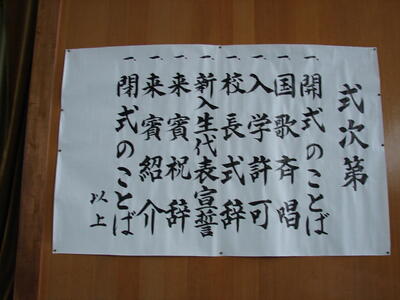 式次第
一、開式のことば
一、国歌斉唱
一、入学許可
一、校長式辞
一、新入生代表宣誓
一、来賓祝辞
一、来賓紹介
一、閉式のことば
以上